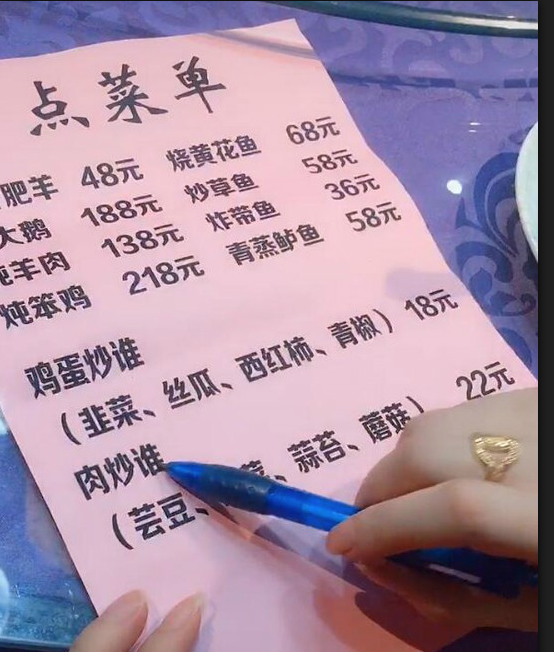 点菜单
肥羊 48元 烧黄花鱼 68元
大鹅 188元 炒草鱼 58元
炖羊肉 138元 炸带鱼 36元
炖笨鸡 218元 青蒸鲈鱼 58元
鸡蛋炒谁
（韭菜、丝瓜、西红柿、青椒）18元
肉炒谁 22元
（芸豆、菜、蒜苔、蘑菇）